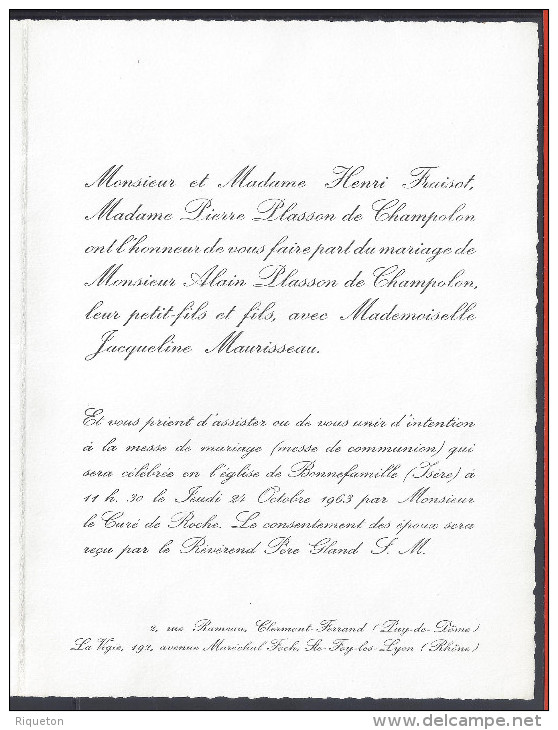 Monsieur et Madame Henri Fraisot,
Madame Pierre Plasson de Champolon
ont l'honneur de vous faire part du mariage de
Monsieur Alain Plasson de Champolon,
leur petit-fils et fils, avec Mademoiselle
Jacqueline Maurisseau.
Et vous prient d'assister ou de vous unir d'intention
à la messe de mariage (messe de communion) qui
sera célébrée en l'église de Bonnefamille (Isère) à
11 h. 30 le Jeudi 24 Octobre 1963 par Monsieur
le Curé de Roche. Le consentement des époux sera
reçu par le Révérend Père Gland S. M.
2, rue Rameau, Clermont-Ferrand (Puy-de-Dôme)
La Vigie, 192, avenue Maréchal Foch, Ste-Foy-les-Lyon (Rhône)
Riqueton
delcampe.net